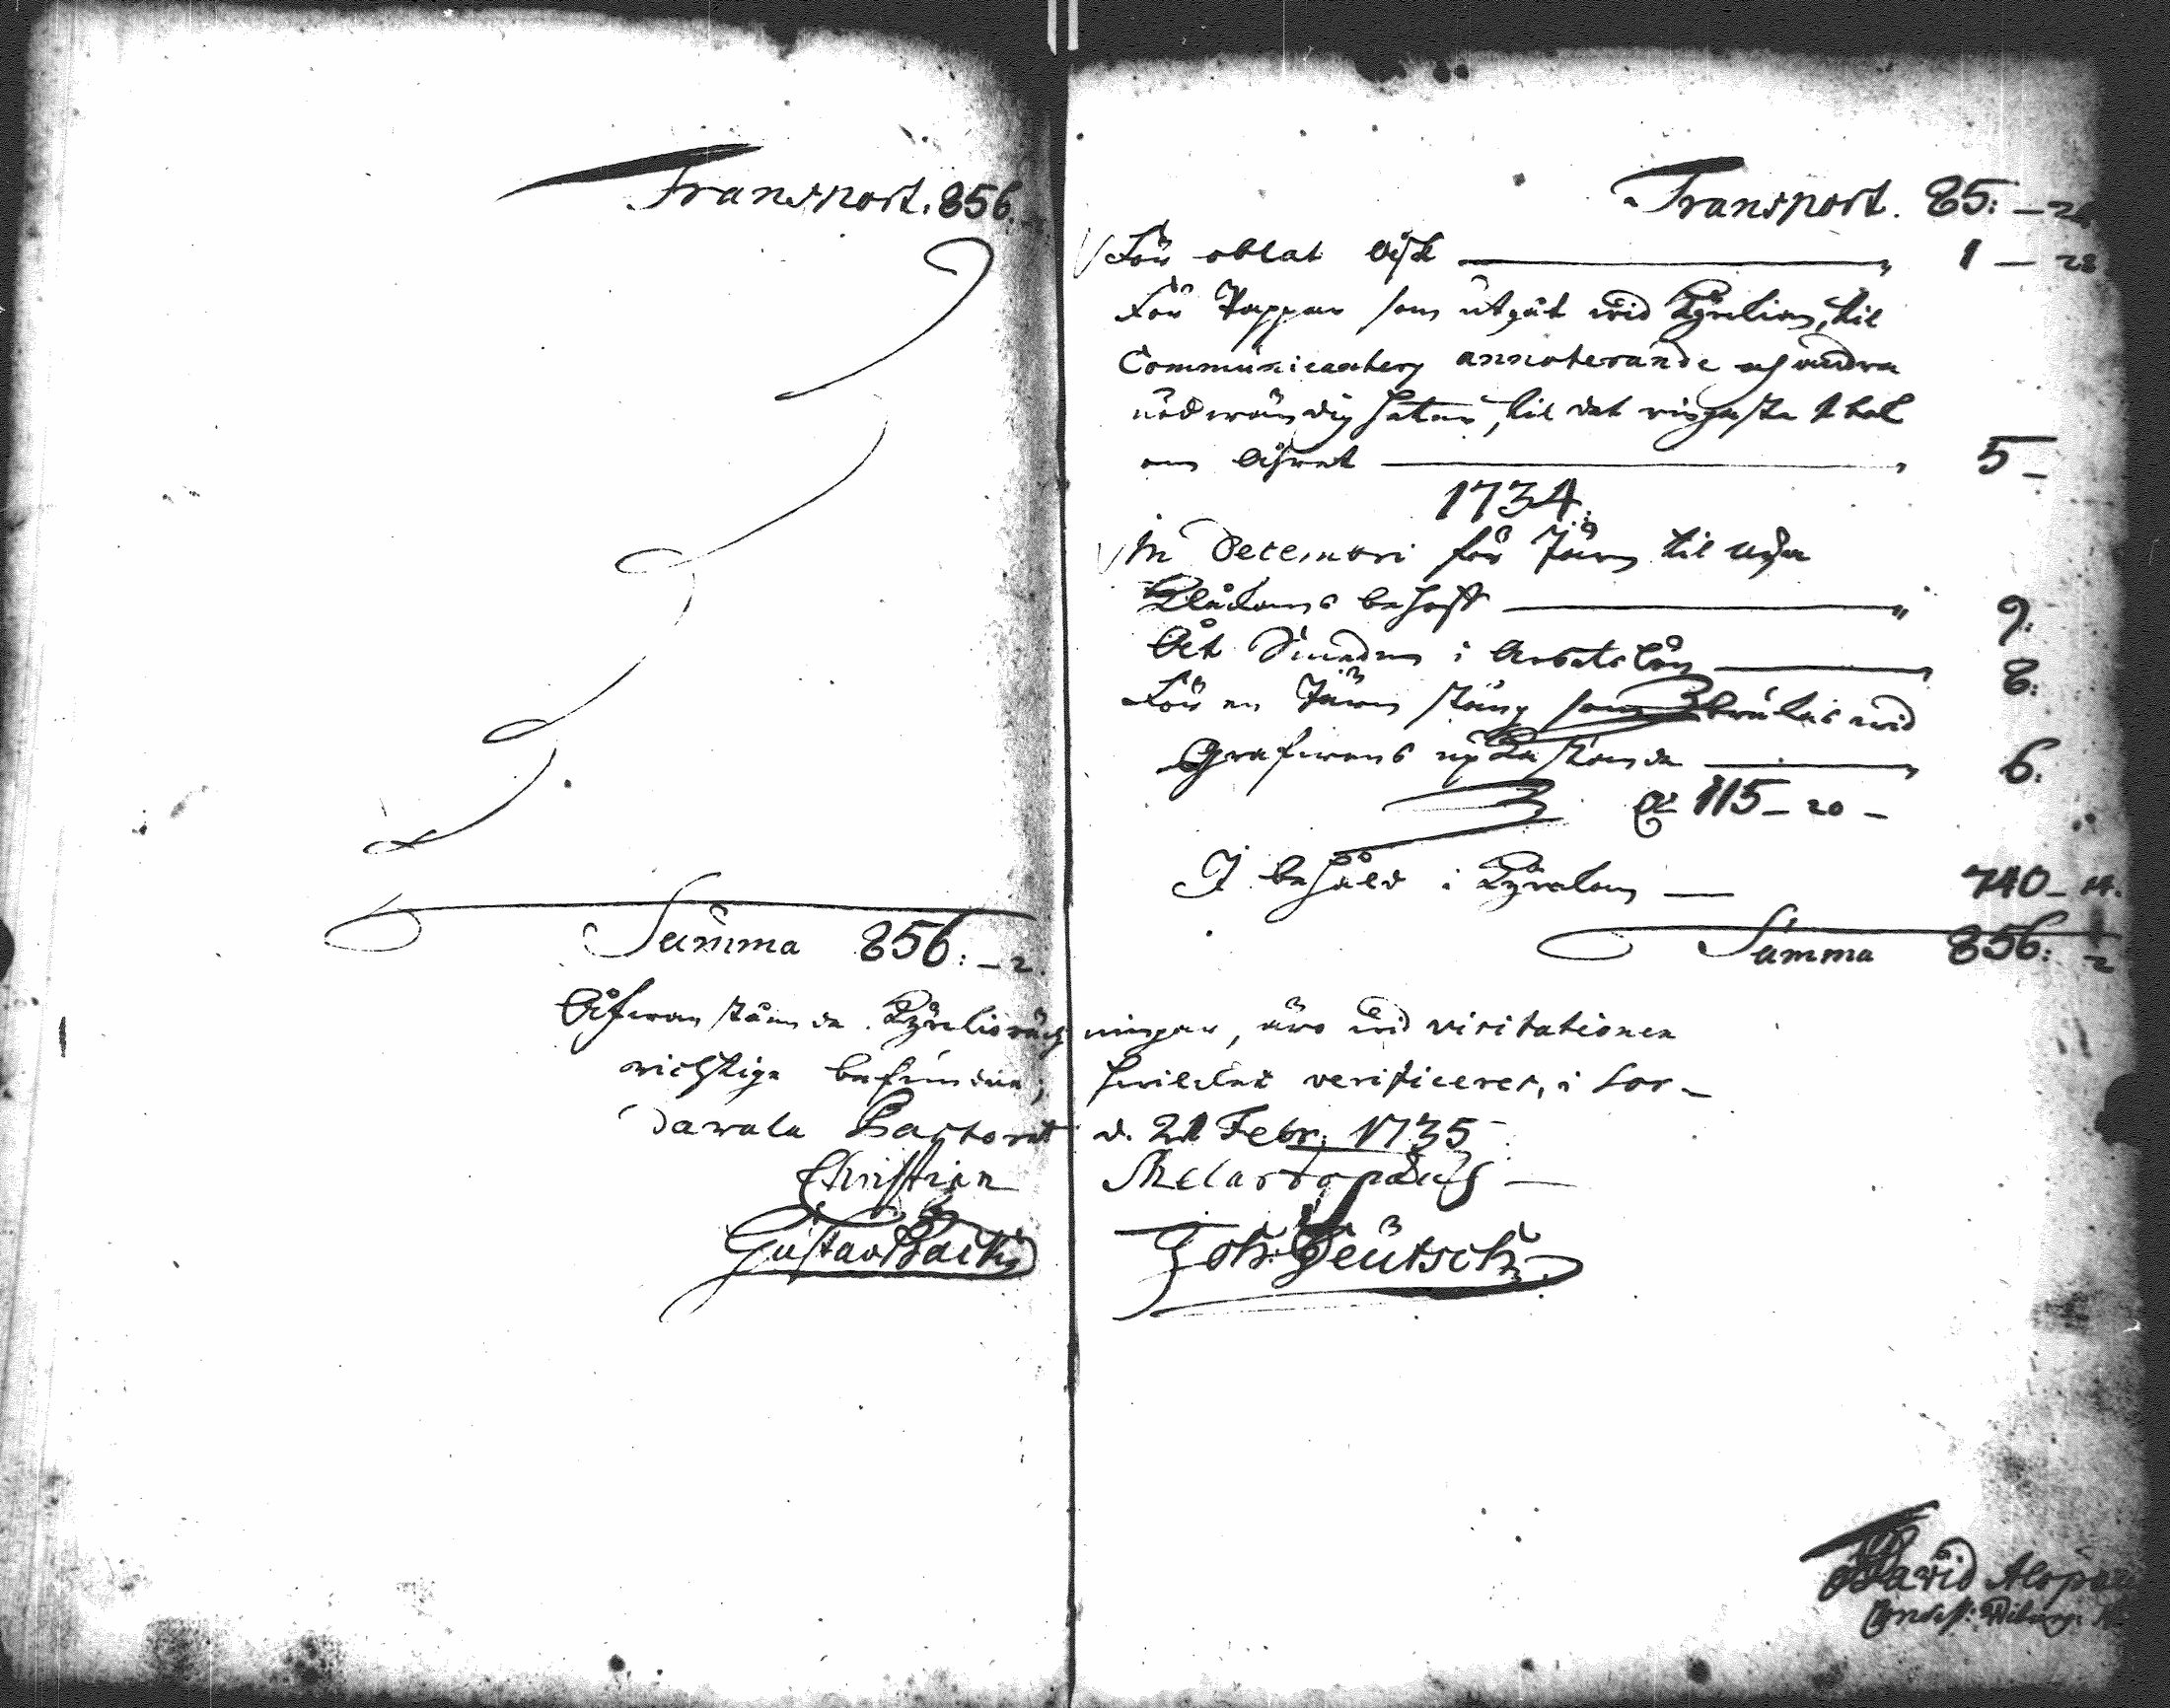 Transport. 856.
Summa 856: - 2.
Transport. 85: - 24
För oblat Ask 1 - 28
För Papper som utgåt wid Kyrkian, til
Communicanters annoterande och andra
nödwändigheter, til det ringasta 1 kal
om Åhret 5 -
1734.
In Decembri för Järn til nya
Klåckans behoff 9:
Åt Smeden i Arbetslön 8:
För en Järn stång som brukas wid
Grafwens upla 6:
115 - 20 -
I behåld i Kyrckan 740 - 14.
Summa 856: 2
Åfwanstående Kyrkioräckningar, äro wid visitationen
richtige befundne; hwilcket verificeres, i Sor-
dawala Pastorat d. 21 Febr. 1735
Christian Melartopæus
Gustav Joh: Deutsch
David Alopæus